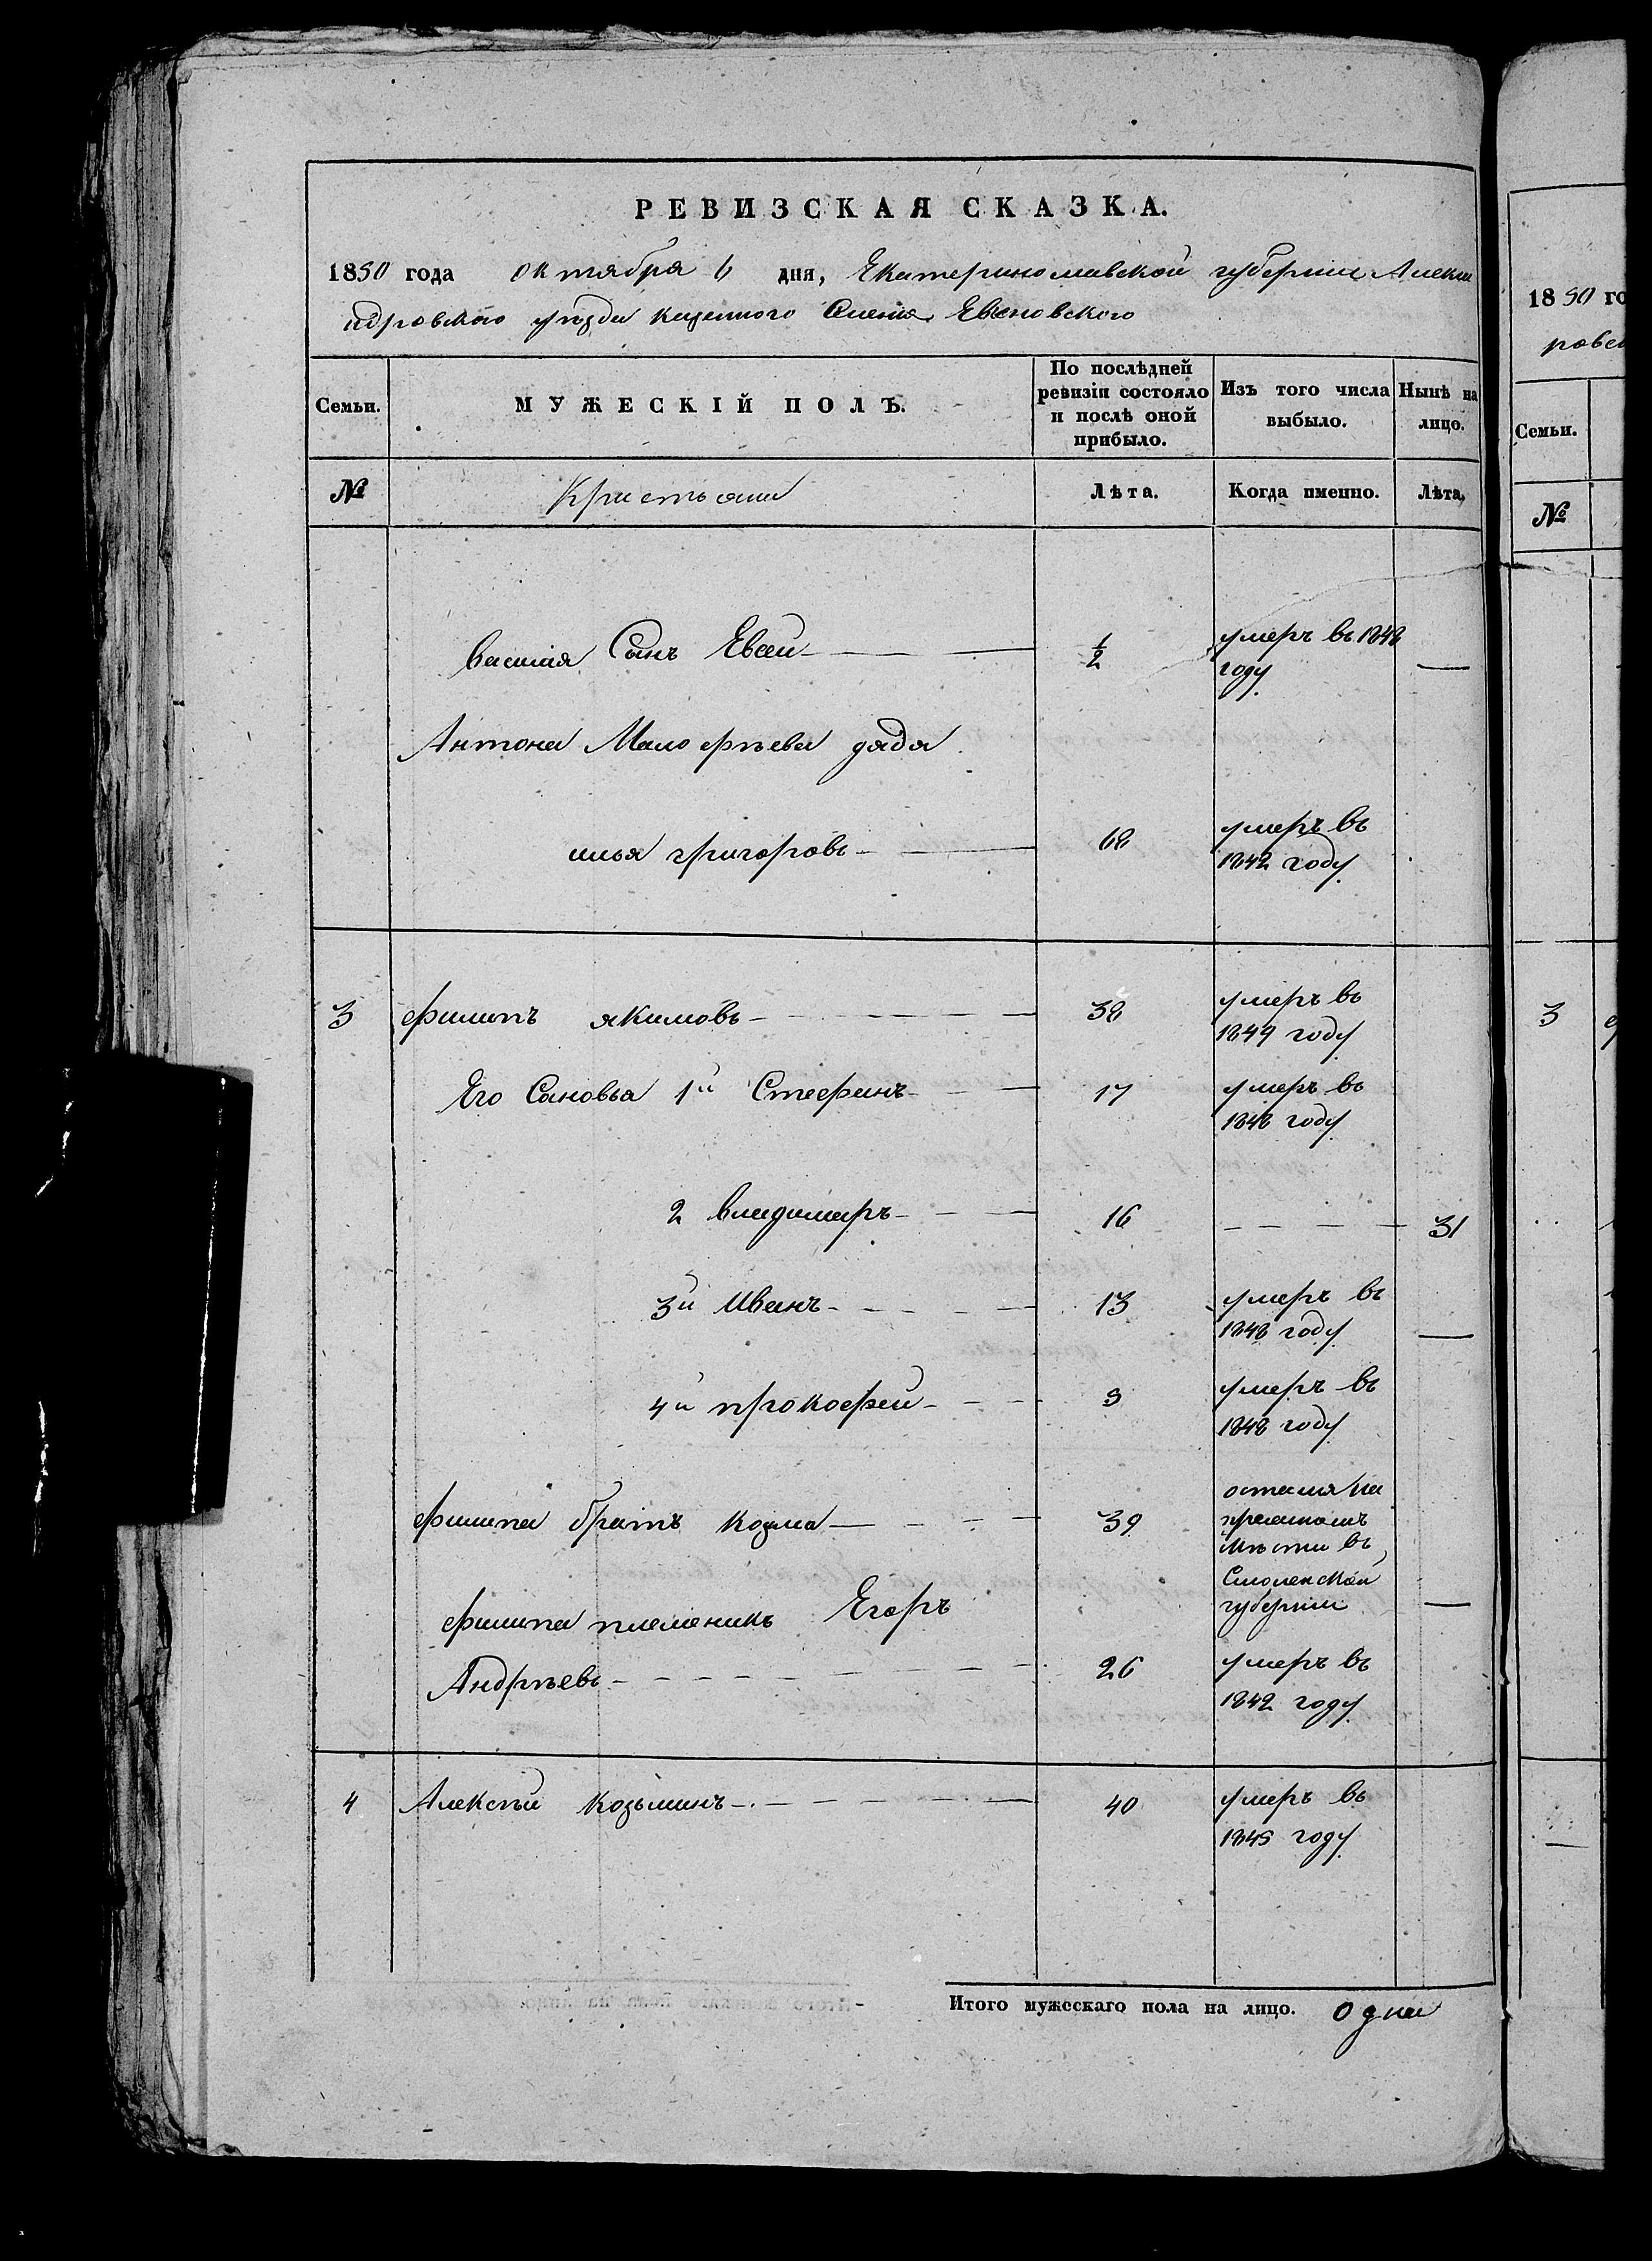 РЕВИЗСКАЯ СКАЗКА.
1850 года октября 6 дня, Екатеринославской губернии Алекса
ндровского уезда казенного Селения Евсеновского
Семьи.
МУЖЕСКІЙ ПОЛЪ.
По послѣдней ревизіи состояло и послѣ оной прибыло.
Изъ того числа выбыло.
Нынѣ на лицо.
№
Кристьани
Лѣта.
Когда именно.
Лѣта.
василия Сынъ Евсей 1/2 умеръ въ 1848
году
Антона Малофѣева дядя
илья григоровъ 68 умеръ въ
1842 году
3 филипъ якимовъ 38 умеръ въ
1849 году
Его Сановья 1й Стефанъ 17 умеръ въ
1848 году
2 владимиръ 16 31
3й Иванъ 13 умеръ въ
1848 году
4й прокофей 9 умеръ въ
1848 году
филипа братъ козма 39 остался на
мѣсти въ
Смоленской
губернии
филипа племеникъ Егоръ
Андрѣевъ 26 умеръ въ
1842 году
4 Алексѣй козьминъ 40 умеръ въ
1845 году
Итого мужескаго пола на лицо. одна
18 50 го
ровск
Семьи.
№
3